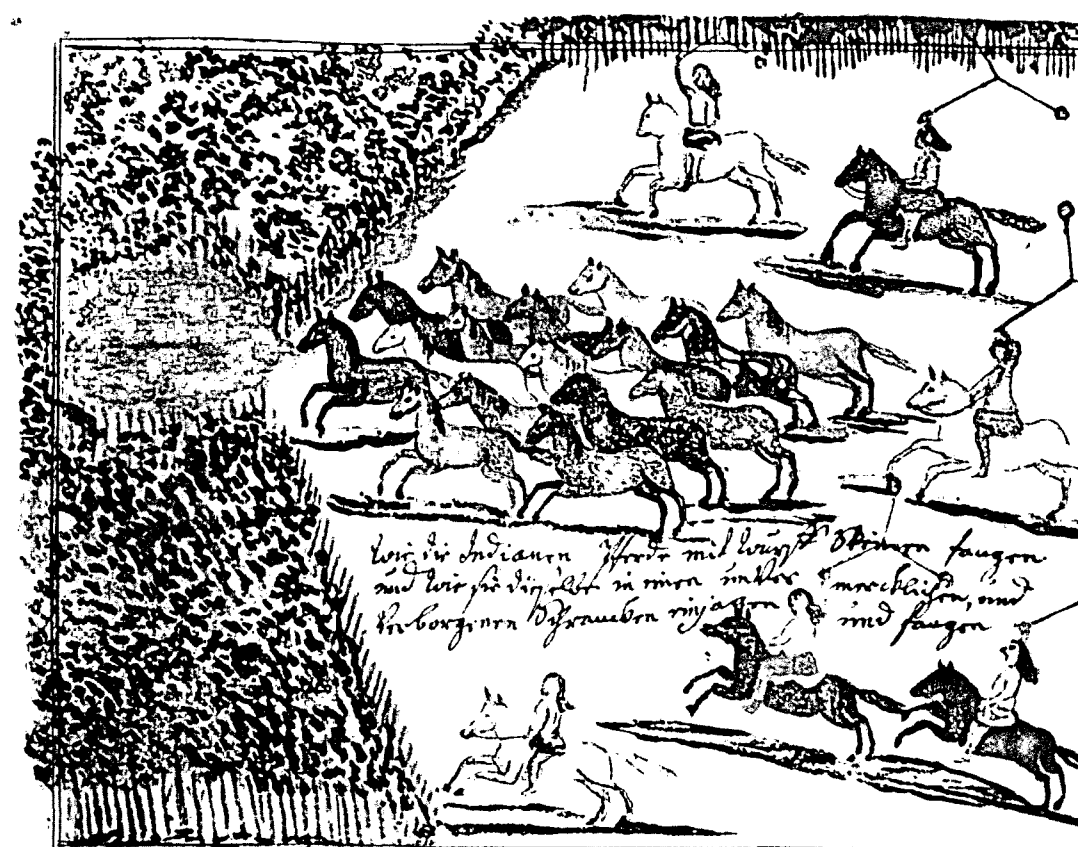 wie die Indianer Pferde mit wurff Steinen fangen
und wie sie dieselbe in einen unver mercklichen, und
verborgenen Schrancken einjagen und fangen